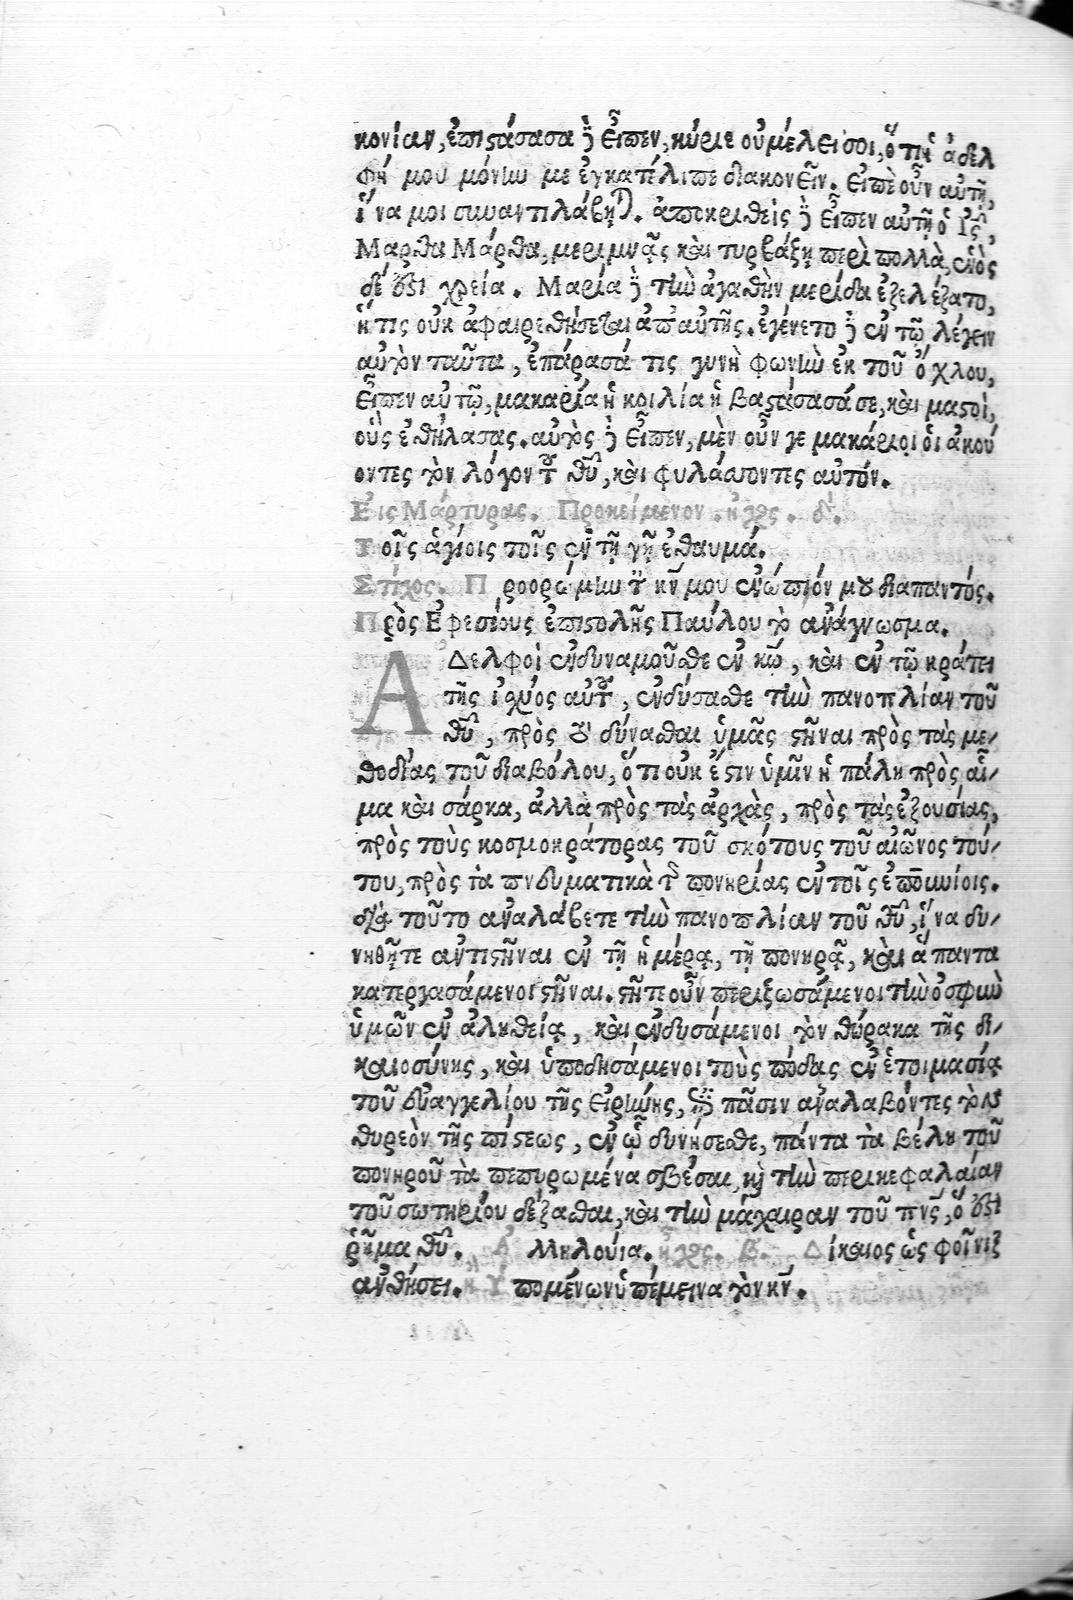 κονίαν, ἐπιστάσασα δὲ εἶπεν, κύριε οὐ μέλει σοι, ὅτι ἡ ἀδελ
φή μου μόνην με ἐγκατέλιπε διακονεῖν. εἰπὲ οὖν αὐτῇ,
ἵνα μοι συναντιλάβηται. ἀποκριθεὶς δὲ εἶπεν αὐτῇ ὁ Ἰς,
Μαρθα Μάρθα, μεριμνᾷς καὶ τυρβάζῃ περὶ πολλὰ, ἑνὸς
δέ ἐστι χρεία. Μαρία δὲ τὴν ἀγαθὴν μερίδα ἐξελέξατο,
ἥτις οὐκ ἀφαιρεθήσεται ἀπ' αὐτῆς. ἐγένετο δὲ ἐν τῷ λέγειν
αὐτὸν ταῦτα, ἐπάρασά τις γυνὴ φωνὴν ἐκ τοῦ ὄχλου,
εἶπεν αὐτῷ, μακαρία ἡ κοιλία ἡ βαστάσασά σε, καὶ μαστοὶ,
οὓς ἐθήλασας. αὐτὸς δὲ εἶπεν, μὲν οὖν γε μακάριοι οἱ ἀκού
οντες τὸν λόγον τοῦ θῦ, καὶ φυλάσσοντες αὐτόν.
Εἰς Μάρτυρας. Προκείμενον. ἦχος. δ'.
Τοῖς ἁγίοις τοῖς ἐν τῇ γῇ ἐθαυμά.
Στίχος. Προορώμην τὸν κν μου ἐνώπιόν μου διαπαντός.
Πρὸς Ἐφεσίους ἐπιστολῆς Παύλου τὸ ἀνάγνωσμα.
ΑΔελφοὶ ἐνδυναμοῦσθε ἐν κῳ, καὶ ἐν τῷ κράτει
τῆς ἰσχύος αὐτοῦ, ἐνδύσασθε τὴν πανοπλίαν τοῦ
θῦ, πρὸς τὸ δύνασθαι ὑμᾶς στῆναι πρὸς τὰς με/
θοδίας τοῦ διαβόλου, ὅτι οὐκ ἔστιν ὑμῖν ἡ πάλη πρὸς αἷ/
μα καὶ σάρκα, ἀλλὰ πρὸς τὰς ἀρχὰς, πρὸς τὰς ἐξουσίας,
πρὸς τοὺς κοσμοκράτορας τοῦ σκότους τοῦ αἰῶνος τού/
του, πρὸς τὰ πνευματικὰ τῆς πονηρίας ἐν τοῖς ἐπουνίοις.
διὰ τοῦτο ἀναλάβετε τὴν πανοπλίαν τοῦ θῦ, ἵνα δυ/
νηθῆτε ἀντιστῆναι ἐν τῇ ἡμέρᾳ, τῇ πονηρᾷ, καὶ ἅπαντα
κατεργασάμενοι στῆναι. στῆτε οὖν περιζωσάμενοι τὴν ὀσφὺν
ὑμῶν ἐν ἀληθείᾳ, καὶ ἐνδυσάμενοι τὸν θώρακα τῆς δι/
καιοσύνης, καὶ ὑποδησάμενοι τοὺς πόδας ἐν ἑτοιμασίᾳ
τοῦ εὐαγγελίου τῆς εἰρήνης, ἐπὶ πᾶσιν ἀναλαβόντες τὸν
θυρεὸν τῆς πίστεως, ἐν ᾧ δυνήσεσθε, πάντα τὰ βέλη τοῦ
πονηροῦ τὰ πεπυρωμένα σβέσαι, καὶ τὴν περικεφαλαίαν
τοῦ σωτηρίου δέξασθαι, καὶ τὴν μάχαιραν τοῦ πνς, ὅ ἐστι
ῥῆμα θῦ. Ἀλληλούια. ἦχος. β. Δίκαιος ὡς φοῖνιξ
ἀνθήσει. Ὑπομένων ὑπέμεινα τὸν κν.